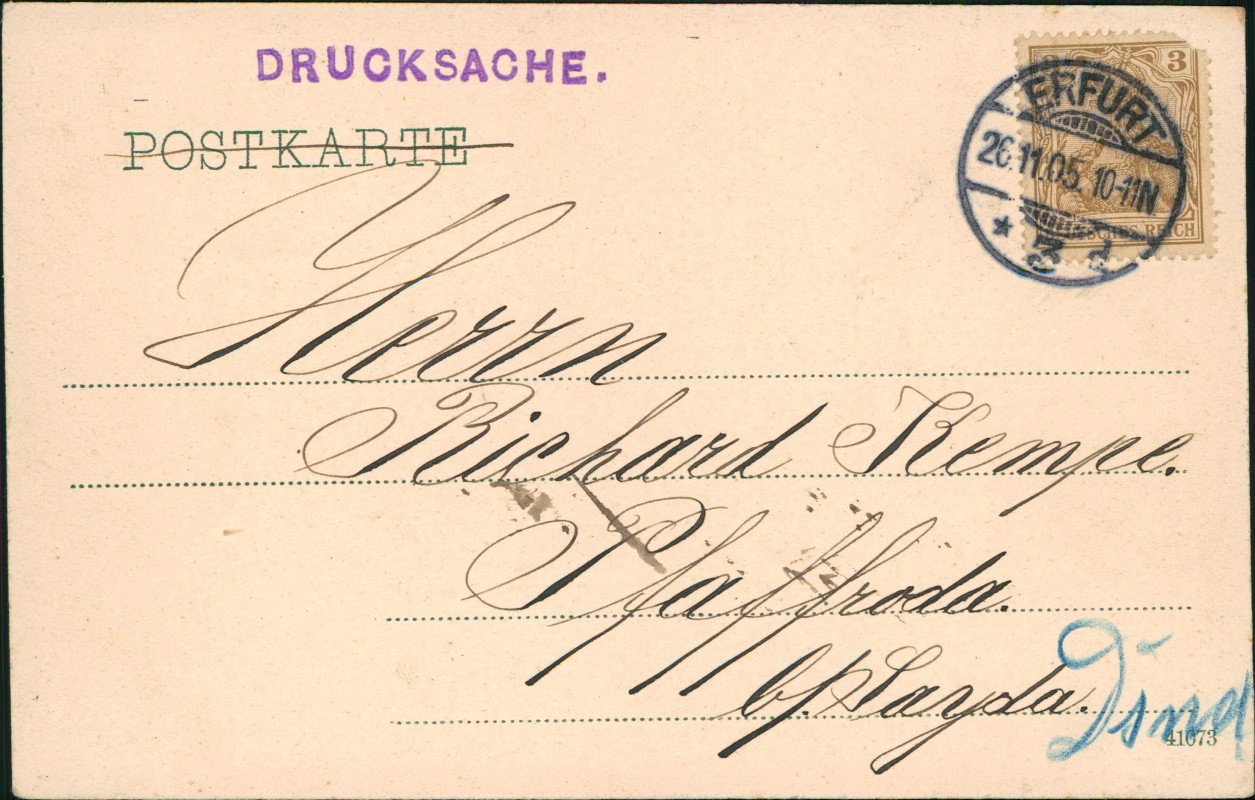 DRUCKSACHE.
POSTKARTE
3
ERFURT
26.11.05. 10-11N.
* 3 d
REICH
Herrn
Richard Kempe.
Pfaffroda.
b/Sayda.
41073